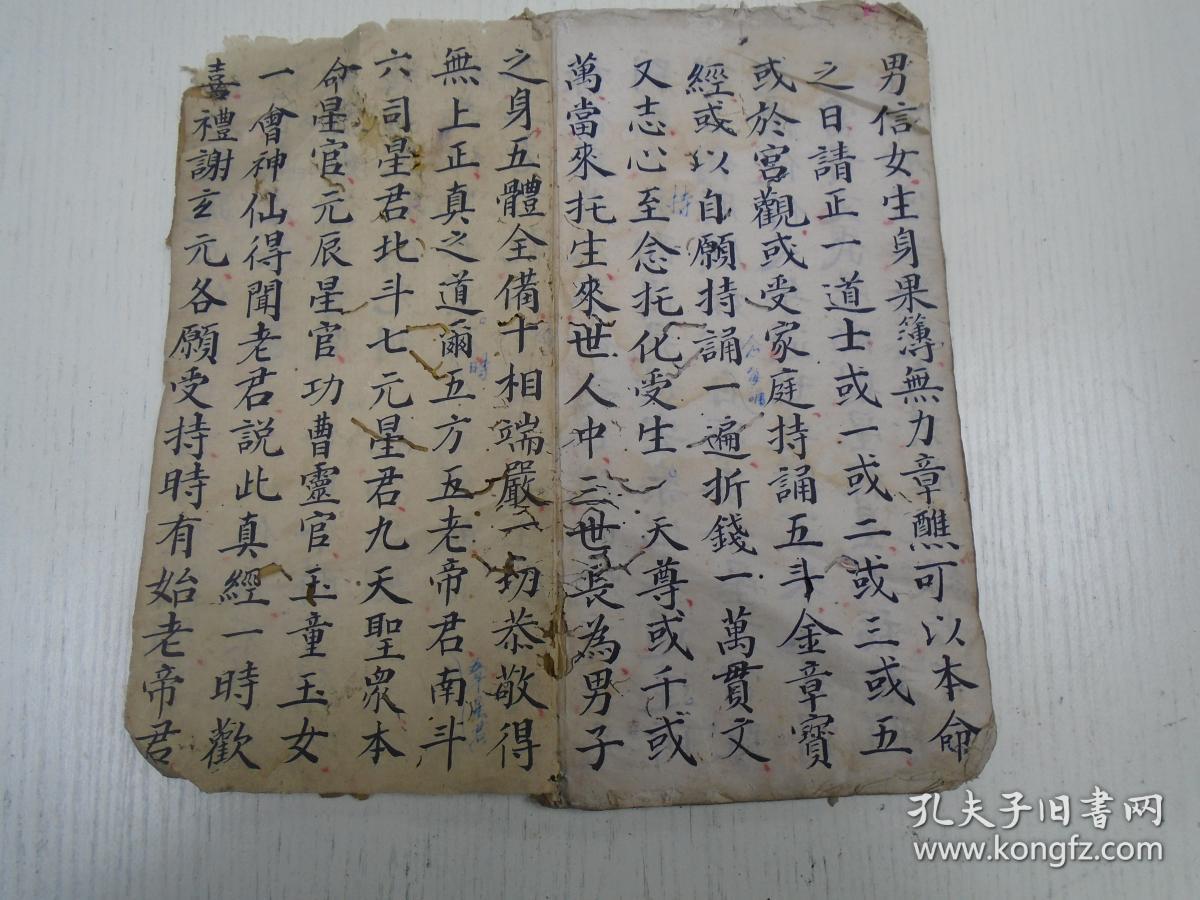 男信女生身果簿無力章醮可以本命
之日請正一道士或一或二或三或五
或於宮觀或受家庭持誦五斗金章寶
經或以自願持誦一遍折錢一萬貫文
又志心至念托化受生一天尊或千或
萬當來托生來世人中三世長為男子
之身五體全備十相端嚴一切恭敬得
無上正真之道爾五方五老帝君南斗
六司星君北斗七元星君九天聖眾本
命星官元辰星官功曹靈官玉童玉女
一會神仙得聞老君説此真經一時歡
喜禮謝玄元各願受持時有始老帝君
持
時
孔夫子旧书网
www.kongfz.com